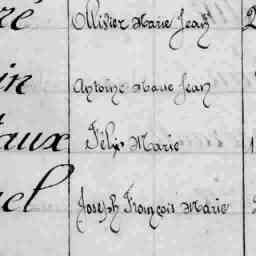 Ollivier Marie Jean
Antoine Marie Jean
aux Félix Marie
el Joseph François Marie